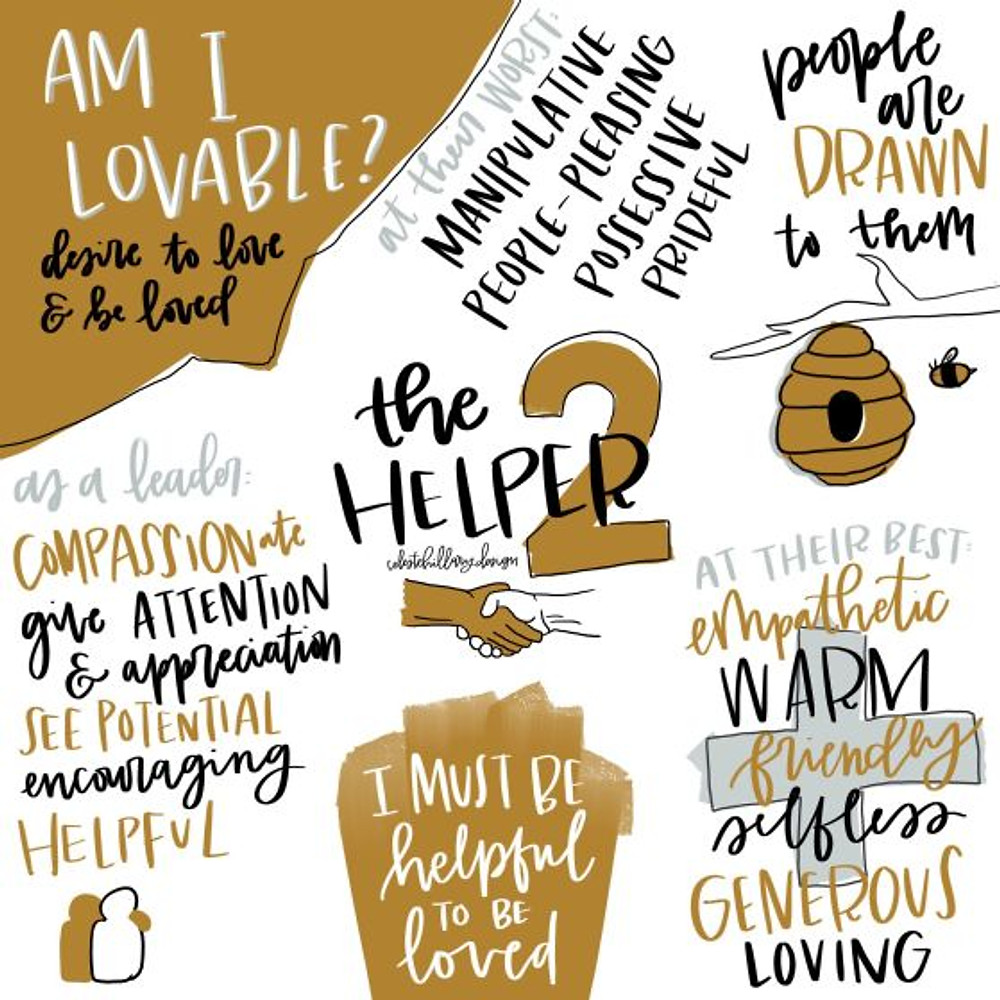 AM I
LOVABLE?
desire to love
& be loved
at their WORST:
MANIPULATIVE
PEOPLE-PLEASING
POSSESSIVE
PRIDEFUL
people
are
DRAWN
to them
the
HELPER
2
as a leader:
COMPASSIONate
give ATTENTION
& appreciation
SEE POTENTIAL
encouraging
HELPFUL
I MUST BE
helpful
TO BE
loved
AT THEIR BEST:
empathetic
WARM
friendly
selfless
GENEROUS
LOVING